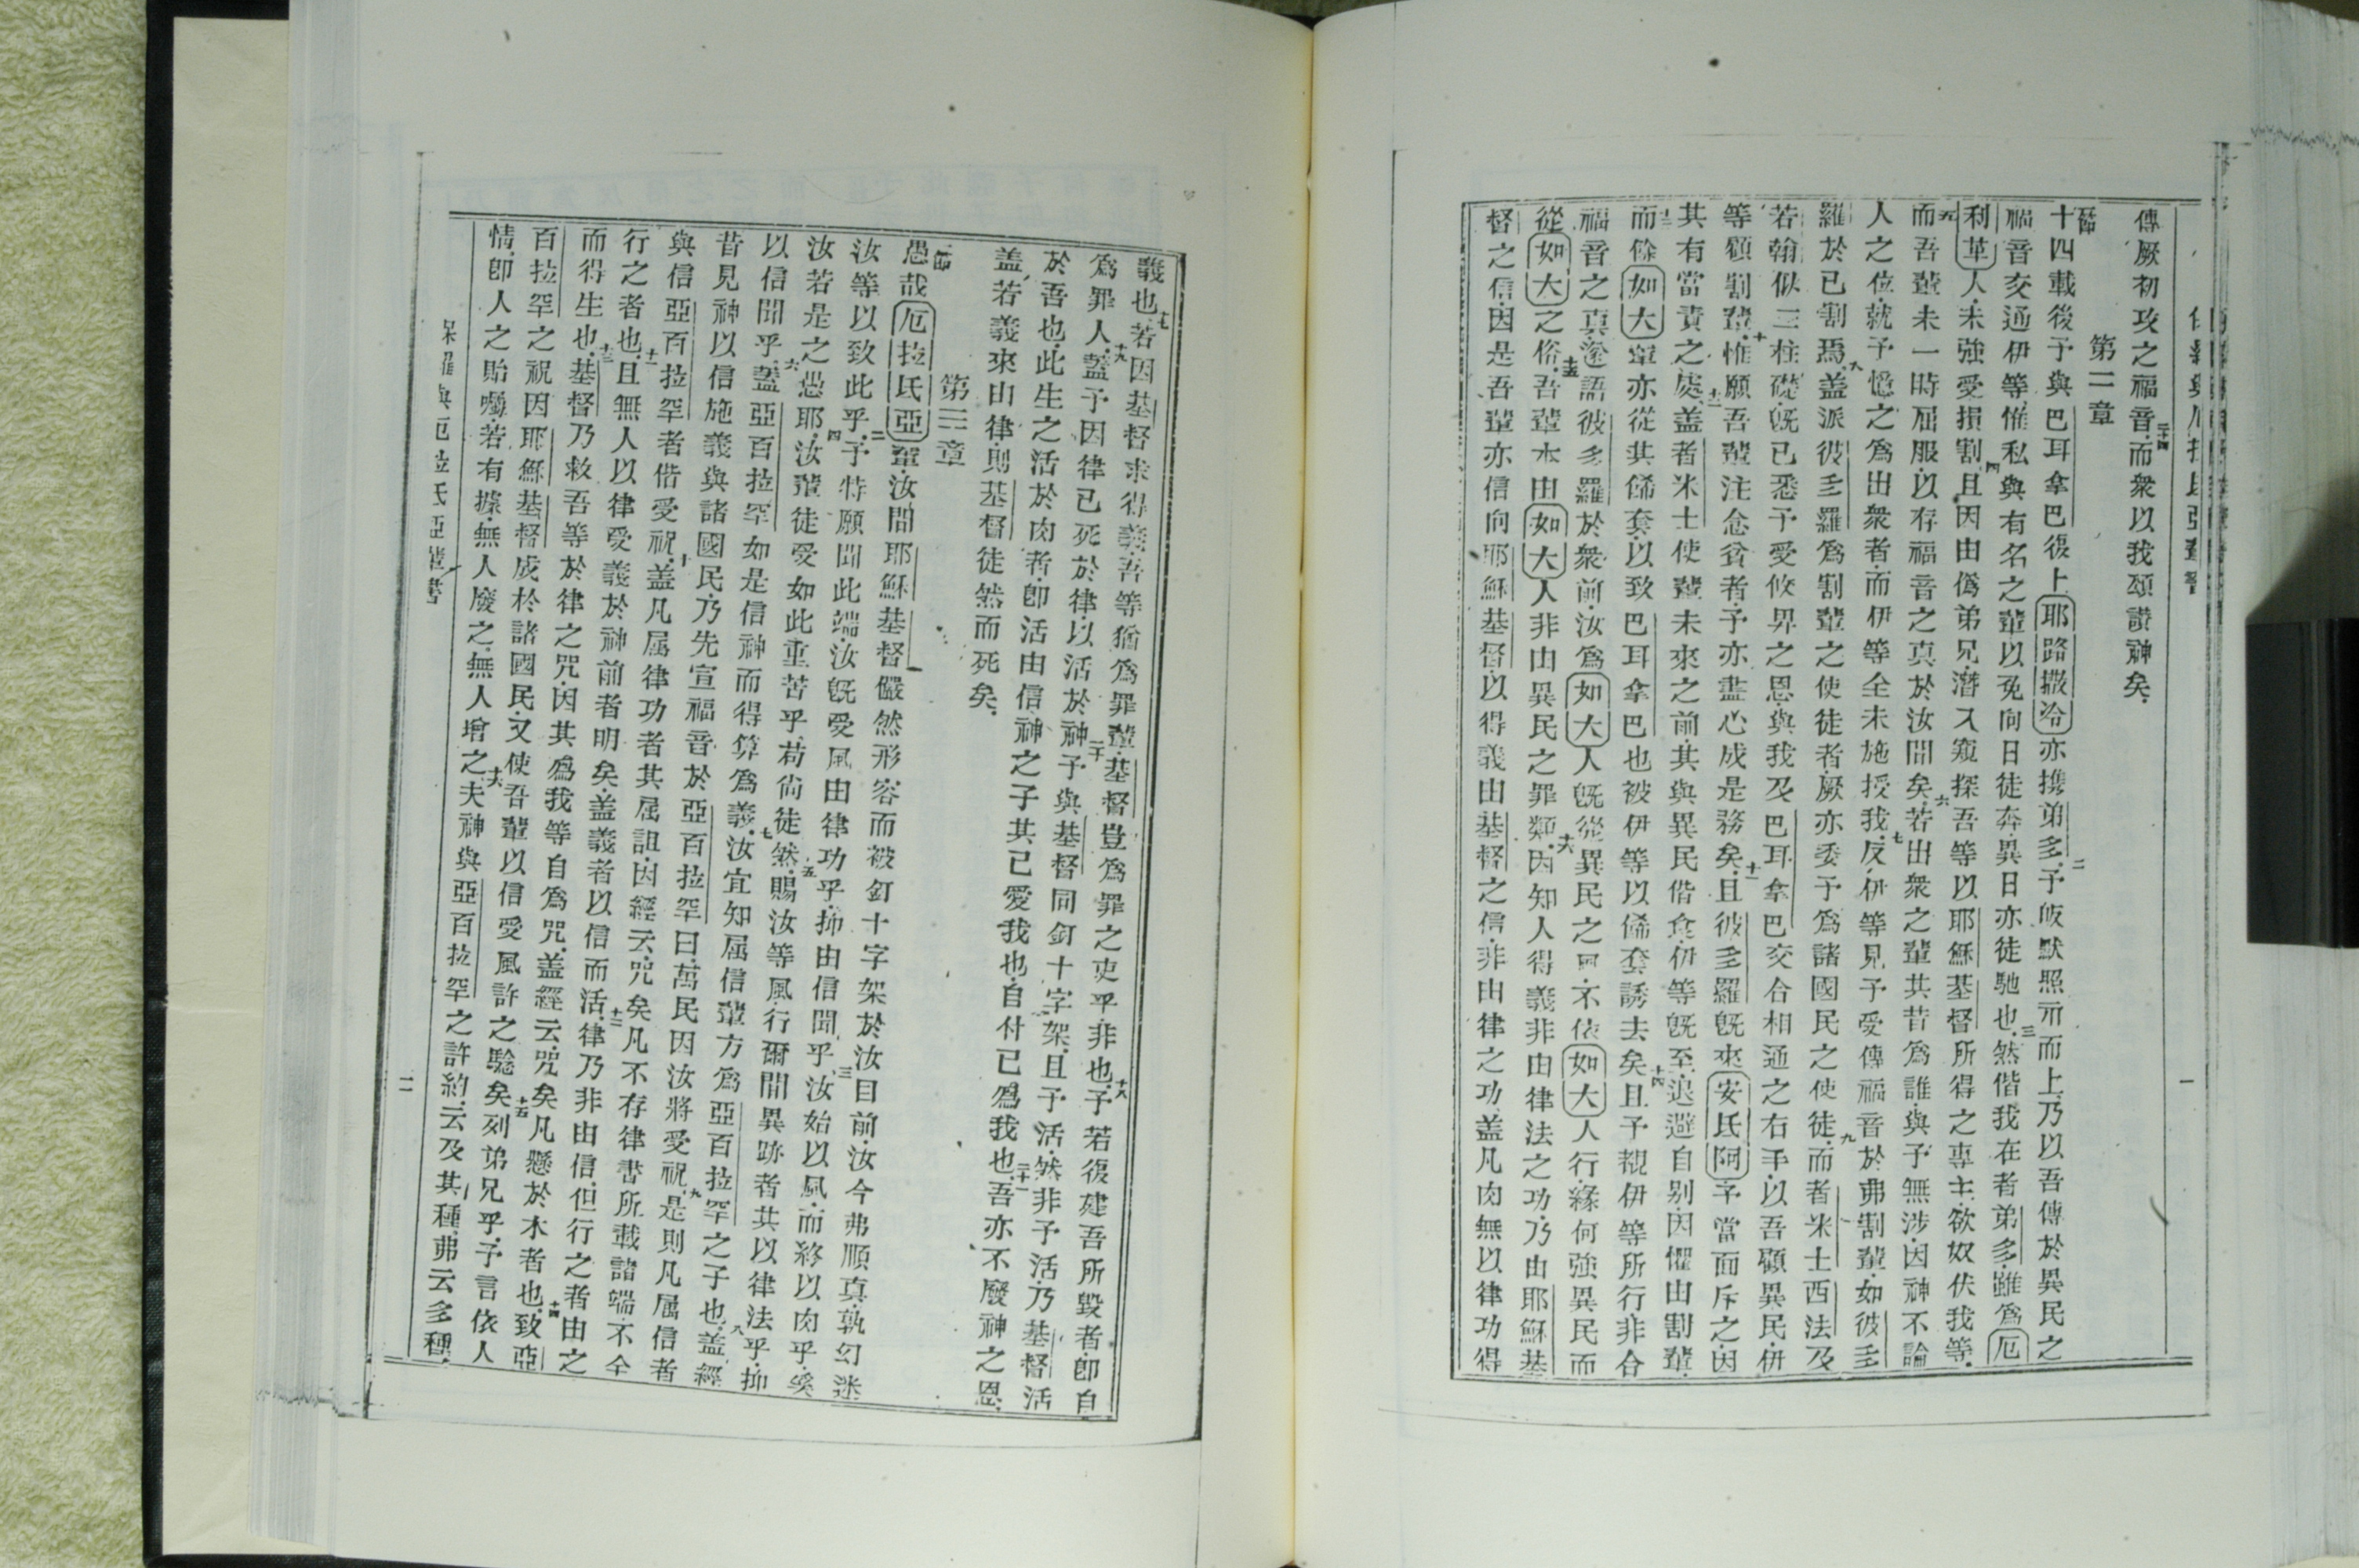 傳厥初攻之福音。二十四而衆以我頌讃神矣。
第二章
一節十四載後予與巴耳拿巴復上耶路撒冷亦攜弟多。二予啟默照示而上。乃以吾傳於異民之
福音交通伊等。惟私與有名之輩以免向日徒奔異日亦徒馳也。三然偕我在者弟多。雖爲厄
利革人。未強受損割。四且因由僞弟兄。潛入窺探吾等以耶穌基督所得之專主。欲奴伏我等。
五而吾輩未一時屈服。以存福音之真於汝間矣。六若出衆之輩其昔爲誰。與予無涉。因神不論
人之位。就予憶之爲出衆者。而伊等全未施授我。七反伊等見予受傳福音於弗割輩。如彼多
羅於已割焉。八蓋派彼多羅爲割輩之使徒者。厥亦委予爲諸國民之使徒。九而者米士西法及
若翰似三柱礎。既已悉予受攸畀之恩。與我及巴耳拿巴交合相通之右手。以吾顧異民。伊
等顧割輩。十惟願吾輩注念貧者。予亦盡心成是務矣。十一且彼多羅既來安氏阿。予當面斥之。因
其有當責之處。十二蓋者米士使輩未來之前。其與異民偕食。伊等既至。退避自別。因懼由割輩。
十三而餘如大輩亦從其餙套。以致巴耳拿巴也被伊等以餙套誘去矣。十四且予覩伊等所行。非合
福音之真。遂語彼多羅於衆前。汝爲如大人。既從異民之風。不依如大人行。緣何強異民而
從如大之俗。十五吾輩本由如大人非由異民之罪類。十六因知人得義非由律法之功。乃由耶穌基
督之信。因是吾輩亦信向耶穌基督。以得義由基督之信。非由律之功。蓋凡肉無以律功得
一
義也。十七若因基督求得義。吾等猶爲罪輩。基督豈爲罪之吏乎。非也。十八予若復建吾所毀者。卽自
爲罪人。十九蓋予因律已死於律。以活於神。二十予與基督同釘十字架。且予活。然非予活。乃基督活
於吾也。此生之活於肉者。卽活由信神之子其已愛我也。自付已爲我也。二十一吾亦不廢神之恩。
蓋若義來由律。則基督徒然而死矣。
第三章
一節愚哉厄拉氏亞輩。汝間耶穌基督儼然形容而被釘十字架於汝目前。汝今弗順真。孰幻迷
汝等以致此乎。二予特願聞此端。汝既愛風由律功乎。抑由信聞乎。三汝始以風。而終以肉乎。奚
汝若是之愚耶。四汝輩徒受如此重苦乎。苟尚徒然。五賜汝等風行爾間異跡者其以律法乎。抑
以信聞乎。六蓋亞百拉罕如是信神而得算爲義。七汝宜知屬信輩方爲亞百拉罕之子也。八蓋經
昔見神以信施義與諸國民。乃先宣福音於亞百拉罕曰。萬民因汝將受祝。九是則凡屬信者
與信亞百拉罕者偕受祝。十蓋凡屬律功者其屬詛。因經云。咒矣凡不存律書所載諸端。不全
行之者也。十一且無人以律受義於神前者明矣。蓋義者以信而活。十二律乃非由信。但行之者由之
而得生也。十三基督乃救吾等於律之咒。因其爲我等自爲咒。蓋經云。咒矣凡懸於木者也。十四致亞
百拉罕之祝因耶穌基督成於諸國民。又使吾輩以信受風許之驗矣。十五列弟兄乎。予言依人
情。卽人之貽囑。若有據。無人廢之。無人增之。十六夫神與亞百拉罕之許約。云及其種。弗云多種。
保羅與厄拉氏亞輩書
二